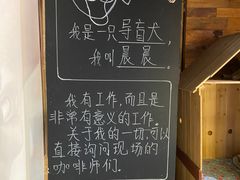 我是一只导盲犬,
我叫晨晨。
我有工作,而且是
非常有意义的工作。
关于我的一切,可以
直接询问现场的
咖啡师们。